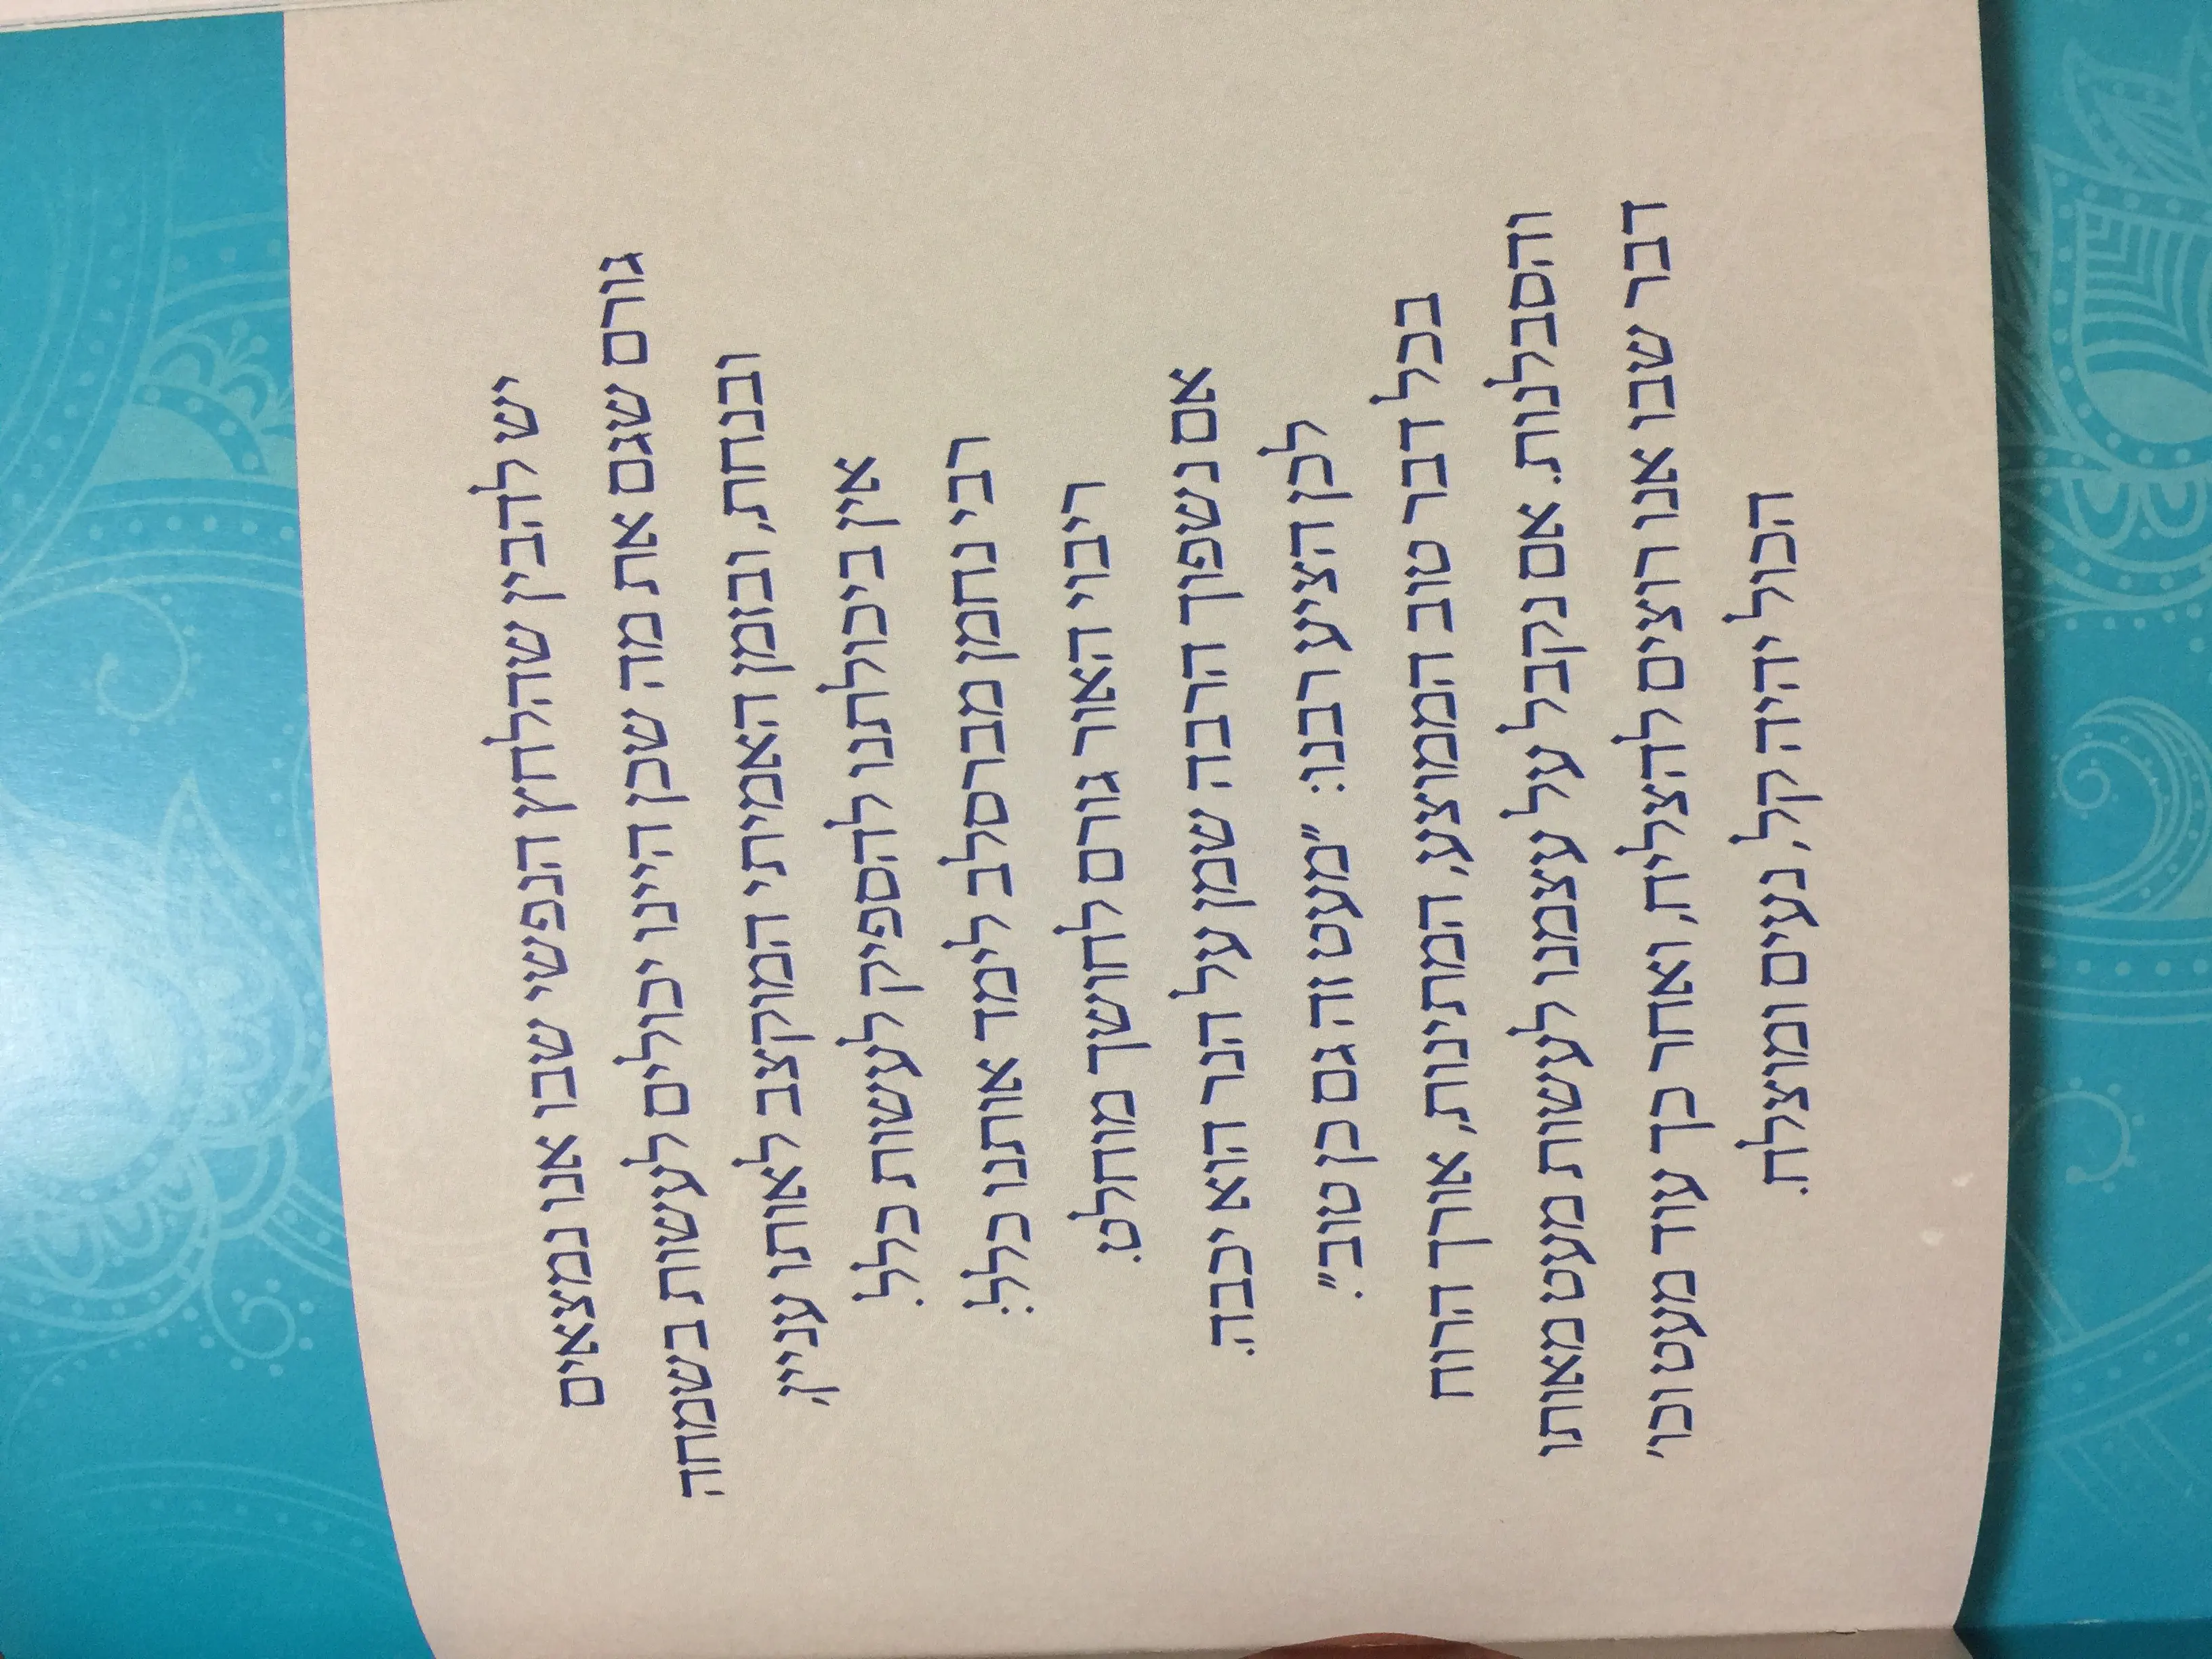 יש להבין שהלחץ הנפשי שבו אנו נמצאים
גורם שגם את מה שכן היינו יכולים לעשות בשמחה
ובנחת, ובזמן האמיתי המוקצב לאותו עניין,
אין ביכולתנו להספיק לעשות כלל.
רבי נחמן מברסלב לימד אותנו כלל:
ריבוי האור גורם לחושך מוחלט.
אם נשפוך הרבה שמן על הנר הוא יכבה.
לכן הציע רבנו: "מעט זה גם כן טוב".
בכל דבר טוב הממוצע, המתינות, אורך הרוח
והסבלנות. אם נקבל על עצמנו לעשות מעט מאותו
דבר שבו אנו רוצים להצליח, ואחר כך עוד מעט וכו'
הכול יהיה קל, נעים ומוצלח.